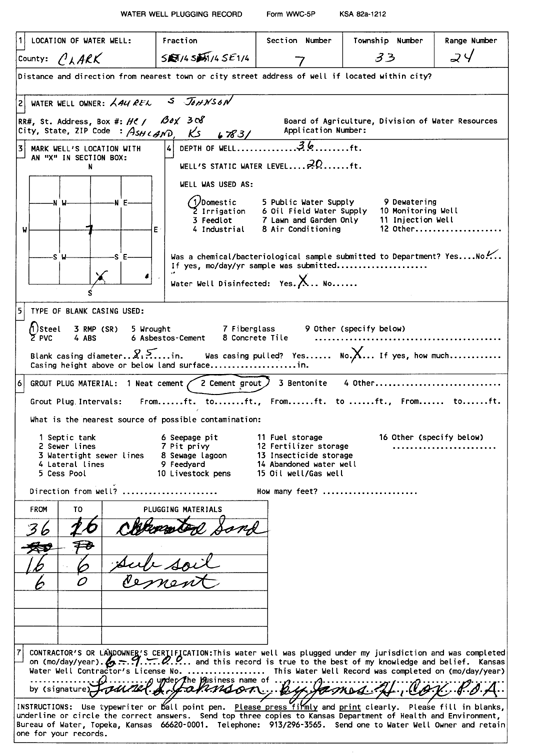 WATER WELL PLUGGING RECORD Form WWC-5P KSA 82a-1212
1 LOCATION OF WATER WELL: Fraction Section Number Township Number Range Number
County: CLARK SE1/4 SE1/4 7 33 24
Distance and direction from nearest town or city street address of well if located within city?
2 WATER WELL OWNER: LAUREL S JOHNSON
RR#, St. Address, Box #: HC1 BOX 308 Board of Agriculture, Division of Water Resources
City, State, ZIP Code : ASHLAND, KS 67831 Application Number:
3 MARK WELL'S LOCATION WITH AN "X" IN SECTION BOX:
N
N W N E
W 7 E
S W S E
X
S
4 DEPTH OF WELL......36......ft.
WELL'S STATIC WATER LEVEL....20....ft.
WELL WAS USED AS:
1 Domestic 5 Public Water Supply 9 Dewatering
2 Irrigation 6 Oil Field Water Supply 10 Monitoring Well
3 Feedlot 7 Lawn and Garden Only 11 Injection Well
4 Industrial 8 Air Conditioning 12 Other................
Was a chemical/bacteriological sample submitted to Department? Yes....No✓..
If yes, mo/day/yr sample was submitted................
Water Well Disinfected: Yes.X... No......
5 TYPE OF BLANK CASING USED:
1 Steel 3 RMP (SR) 5 Wrought 7 Fiberglass 9 Other (specify below)
2 PVC 4 ABS 6 Asbestos-Cement 8 Concrete Tile ................................
Blank casing diameter..8.5....in. Was casing pulled? Yes...... No.X... If yes, how much..........
Casing height above or below land surface......................in.
6 GROUT PLUG MATERIAL: 1 Neat cement 2 Cement grout 3 Bentonite 4 Other....................
Grout Plug Intervals: From......ft. to......ft., From......ft. to ......ft., From...... to......ft.
What is the nearest source of possible contamination:
1 Septic tank 6 Seepage pit 11 Fuel storage 16 Other (specify below)
2 Sewer lines 7 Pit privy 12 Fertilizer storage ........................
3 Watertight sewer lines 8 Sewage lagoon 13 Insecticide storage
4 Lateral lines 9 Feedyard 14 Abandoned water well
5 Cess Pool 10 Livestock pens 15 Oil well/Gas well
Direction from well? ...................... How many feet? ......................
FROM TO PLUGGING MATERIALS
36 16 Sand
16 6 sub soil
6 0 Cement
7 CONTRACTOR'S OR LANDOWNER'S CERTIFICATION:This water well was plugged under my jurisdiction and was completed
on (mo/day/year).6-9-00.. and this record is true to the best of my knowledge and belief. Kansas
Water Well Contractor's License No. ................. This Water Well Record was completed on (mo/day/year)
.................... under the business name of ........................................
by (signature) Laurel S. Johnson by James H. Cox P.O.A.
INSTRUCTIONS: Use typewriter or ball point pen. Please press firmly and print clearly. Please fill in blanks,
underline or circle the correct answers. Send top three copies to Kansas Department of Health and Environment,
Bureau of Water, Topeka, Kansas 66620-0001. Telephone: 913/296-3565. Send one to Water Well Owner and retain
one for your records.